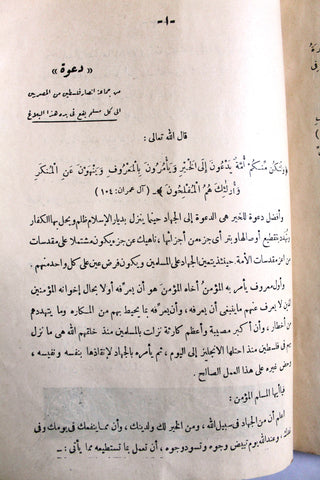 -١-
« دعوة »
من جماعة انصار فلسطين من المصريين
الى كل مسلم يقع في يده هذا البلاغ
قال الله تعالى :
﴿ ولتكن منكم أمة يدعون إلى الخير ويأمرون بالمعروف وينهون عن المنكر
وأولئك هم المفلحون ﴾ ـ (آل عمران: ١٠٤)
وأفضل دعوة للخير هى الدعوة إلى الجهاد حينما ينزل بديار الإسلام ظالم ويحل بها الكفار
ويُهدّد بتقطيع أوصالها وبتر أى جزء من أجزائها، ناهيك عن جزء يكون مشتملا على مقدسات
من أعز مقدسات الأمة. حينئذ يتعين الجهاد على المسلمين ويكون فرض عين على كل واحد منهم.
وأول معروف يأمر به المؤمن أخاه المؤمن هو أن يعرّفه أولا بحال إخوانه المؤمنين
لا يعرف عنهم ما ينبغى أن يعرفه، وأن يعرّفه بما يحيط بهم من المكاره وما يتهددهم
من أخطار، وأن أكبر مصيبة وأعظم كارثة نزلت بالمسلمين منذ خلقهم الله هى ما نزل
بهم فى فلسطين منذ احتلها الانجليز إلى اليوم، ثم يأمره بالجهاد لإنقاذها بنفسه ونفيسه،
وحض غيره على هذا العمل الصالح.
فيا أيها المسلم المؤمن :
اعلم أن من الجهاد فى سبيل الله، ومن الخير لك ولدينك، وأن مما ينفعك فى يومك وفى
غدك، وعند الله يوم تبيض وجوه وتسود وجوه، أن تعمل بما تستطيعه مما يأتى : ـ